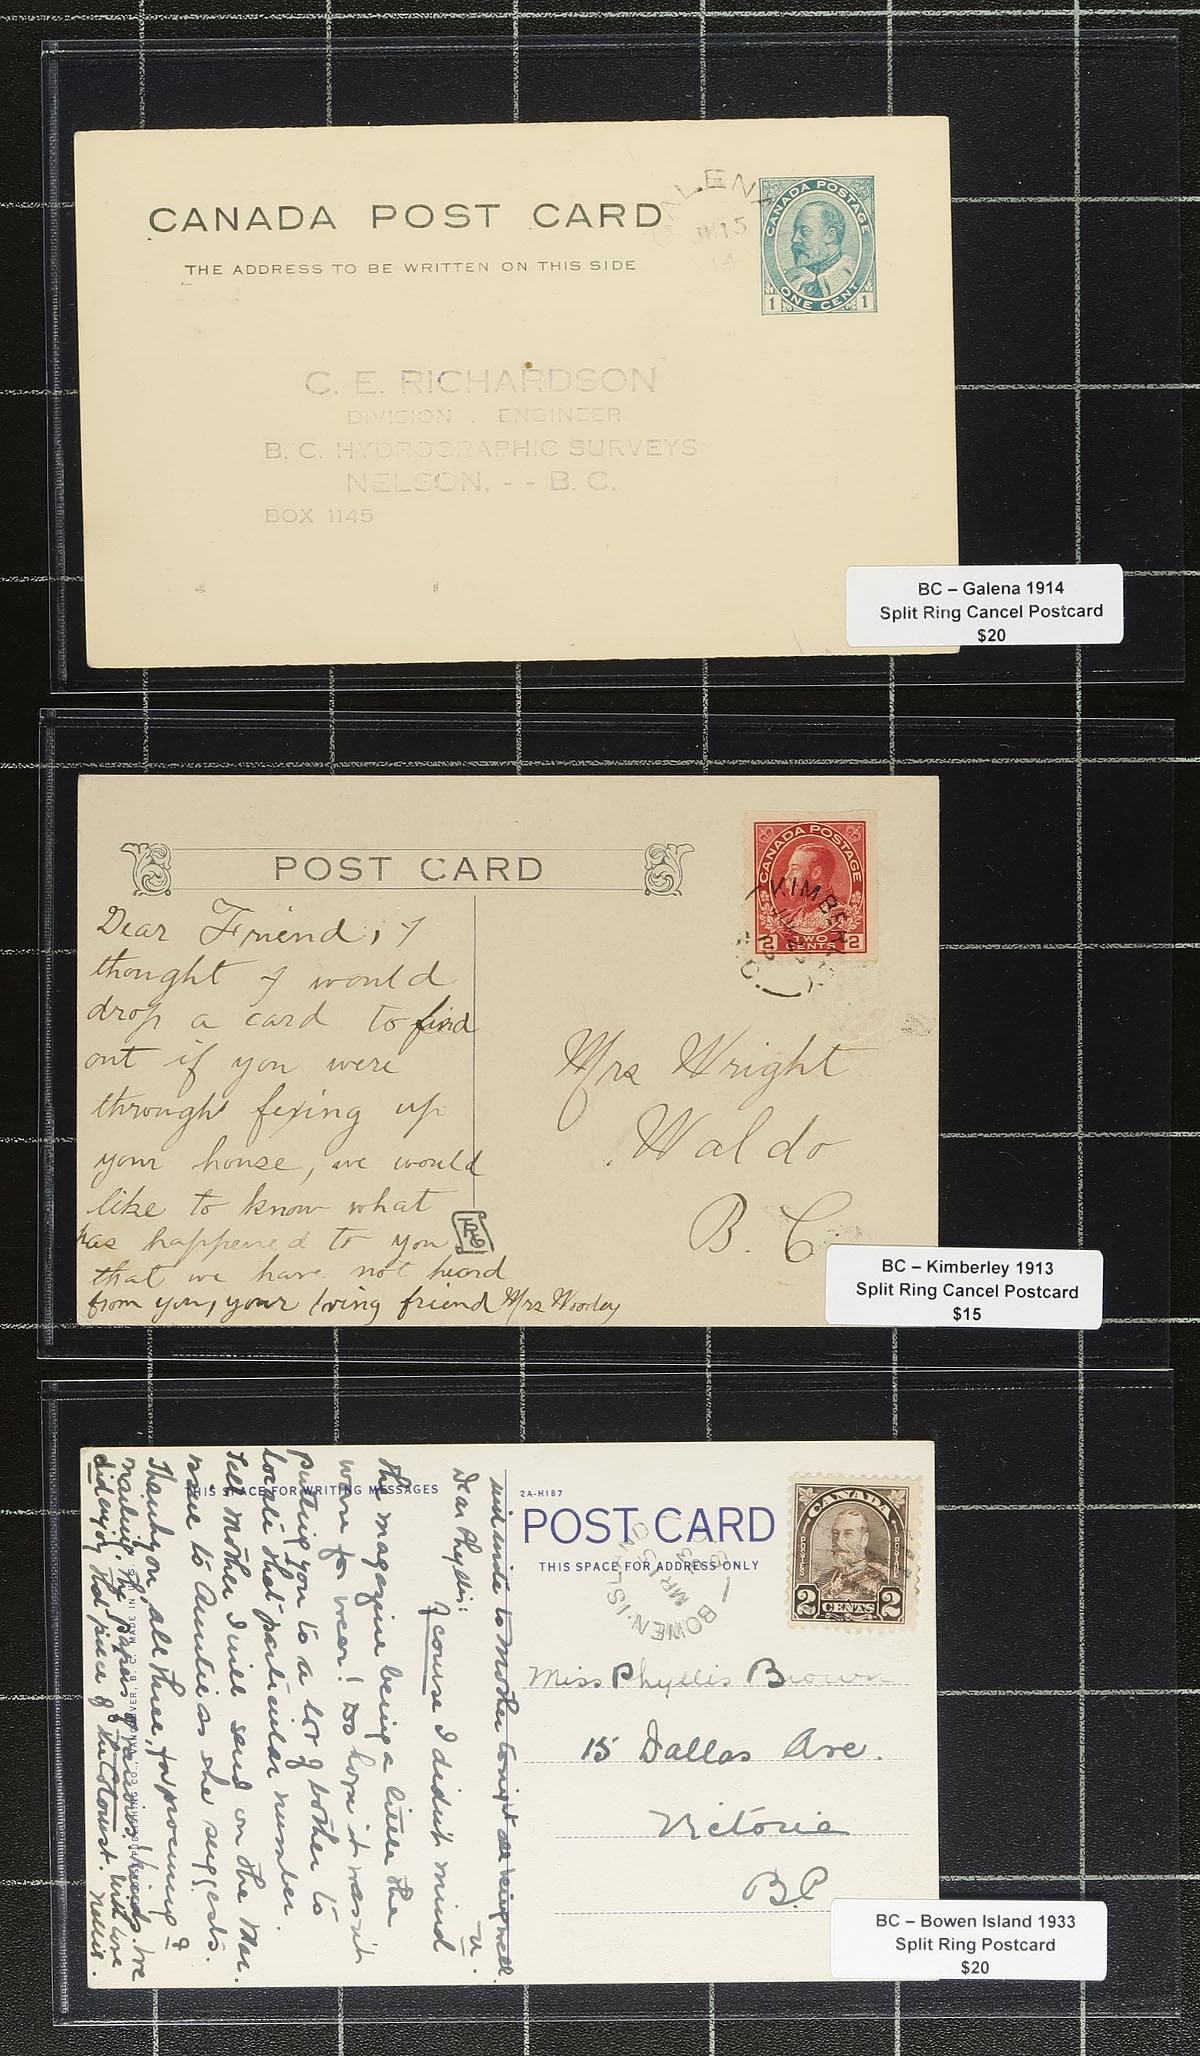 CANADA POST CARD
THE ADDRESS TO BE WRITTEN ON THIS SIDE
GALENA
JU 15
14
CANADA POSTAGE
ONE CENT
1 1
C. E. RICHARDSON
DIVISION . ENGINEER
B. C. HYDROGRAPHIC SURVEYS
NELSON, - - B. C.
BOX 1145
BC – Galena 1914
Split Ring Cancel Postcard
$20
POST CARD
CANADA POSTAGE
2 TWO CENTS 2
KIMBERLEY
B.C.
Dear Friend, I
thought I would
drop a card to find
out if you were
through fixing up
your house, we would
like to know what
has happened to you
that we have not heard
from you, your loving friend Mrs Woodey
Mrs Wright
Waldo
B. C.
BC – Kimberley 1913
Split Ring Cancel Postcard
$15
THIS SPACE FOR WRITING MESSAGES
2A-H187
POST CARD
THIS SPACE FOR ADDRESS ONLY
CANADA
POSTES POSTES
2 CENTS 2
BOWEN ISLAND
MR
33
write to Mother tonight all being well.
Dear Phyllis:
Of course I didn't mind
the magazine being a little the
worse for wear! Do hope it wasn't
putting you to a lot of bother to
locate that particular number.
Tell Mother I will send on the Mac.
to Auntie as she suggests.
Thank you all three, for procuring &
mailing the papers
did enjoy that piece of the Colonist. Nellie.
Miss Phyllis Brown
15 Dallas Ave.
Victoria
B.C.
BC – Bowen Island 1933
Split Ring Postcard
$20